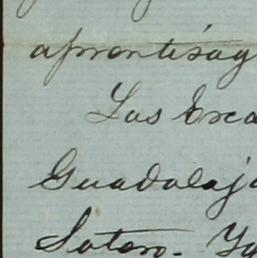 aprontisag
Las Erca
Guadalaja
Soton. Ya